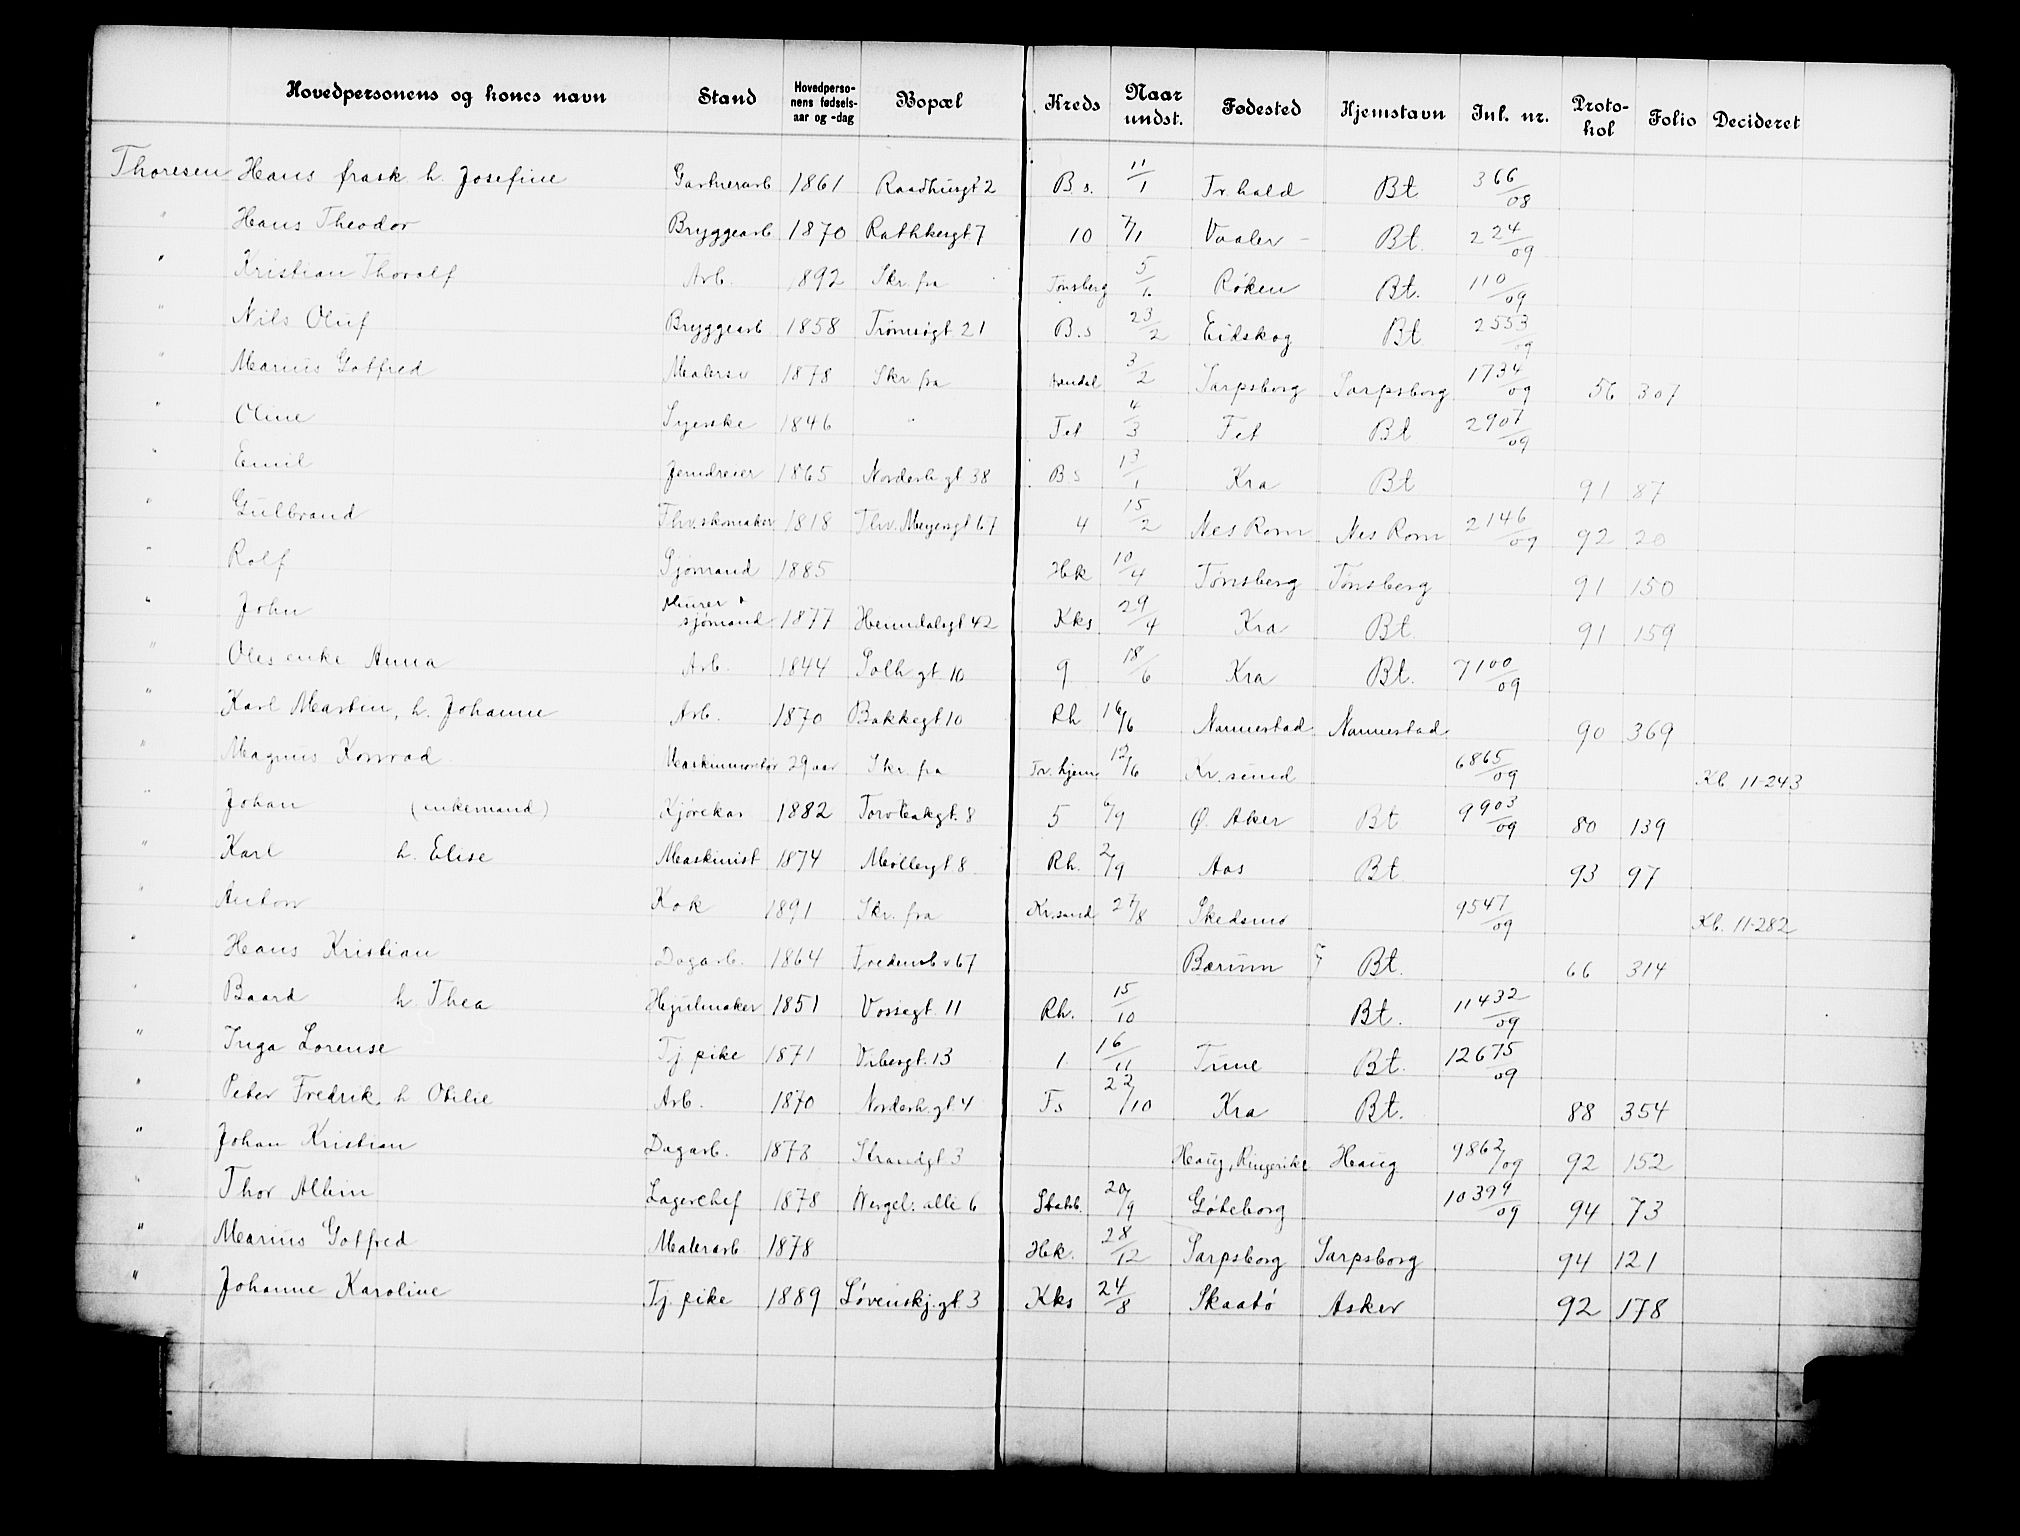 Hovedpersonens og kones navn Stand Hovedperso-nens fødsels-aar og -dag Bopæl Kreds Naar undst. Fødested Hjemstavn Inl. nr. Proto-kol Folio Decideret
Thoresen Hans frask. h. Josefine Gartnerarb 1861 Raadhusgt 2 B s. 11/1 Fr.hald Bt 366/08
" Hans Theodor Bryggearb 1870 Rathkesgt 7 10 7/1 Vaaler Bt. 224/09
" Kristian Thoralf Arb. 1892 Skr. fra Tønsberg 5/1. Røken Bt. 110/09
" Nils Oluf Bryggearb 1858 Tromsøgt 21 B.s 23/2 Eidskog Bt 2553/09
" Marius Gotfred Malersv 1878 Skr fra Arendal 3/2 Sarpsborg Sarpsborg 1734/09 56 307
" Oline Syerske 1846 " Fet 4/3 Fet Bt 2907/09
" Emil Jerndreier 1865 Norderh.gt 38 B s 13/1 Kra Bt 91 87
" Gulbrand Fhv. skomaker 1818 Thv. Meyersgt 67 4 15/2 Nes Rom Nes Rom 2146/09 92 20
" Rolf Sjømand 1885 Hek 10/4 Tønsberg Tønsberg 91 150
" John Murer + sjømand 1877 Heimdalsgt 42 Kks 29/4 Kra Bt. 91 159
" Oles enke Anna Arb. 1844 Solh gt 10 9 18/6 Kra Bt. 7100/09
" Karl Martin, h. Johanne Arb. 1870 Bakkegt 10 Rh 16/6 Nannestad Nannestad 90 369
" Magnus Konrad Maskinmontør 29 aar Skr. fra Tr. hjem 12/6 Kr. sund 6865/09 Kb 11-243
" Johan (enkemand) Kjørekar 1882 Torvbakgt. 8 5 6/9 Ø. Aker Bt 9903/09 80 139
" Karl h. Elise Maskinist 1874 Møllergt 8 Rh. 2/9 Aas Bt. 93 97
" Anton Kok 1891 Skr. fra Kr.sund 27/8 Skedsmo 9547/09 Kb. 11-282
" Hans Kristian Dagarb. 1864 Fredensb v 67 Bærum Bt. 66 314
" Baard h. Thea Hjulmaker 1851 Vossegt. 11 Rh. 15/10 Bt. 11432/09
" Inga Lorense Tj pike 1871 Vibesgt. 13 1. 16/11 Tune Bt. 12675/09
" Peter Fredrik, h Otilie Arb. 1870 Norderh.gt 4 Fs 22/10 Kra Bt. 88 354
" Johan Kristian Dagarb. 1873 Strandgt 3 Haug, Ringerike Haug 9862/09 92 152
" Thor Albin Lagerchef 1878 Wergel. alle 6 Stabb. 20/9 Gøteborg 10399/09 94 73
" Marius Gotfred Malerarb 1878 Hek. 28/12 Sarpsborg Sarpsborg 94 121
" Johanne Karoline Tj. pike 1889 Løvenskj.gt. 3 Kks 24/8 Skaatø Asker 92 178